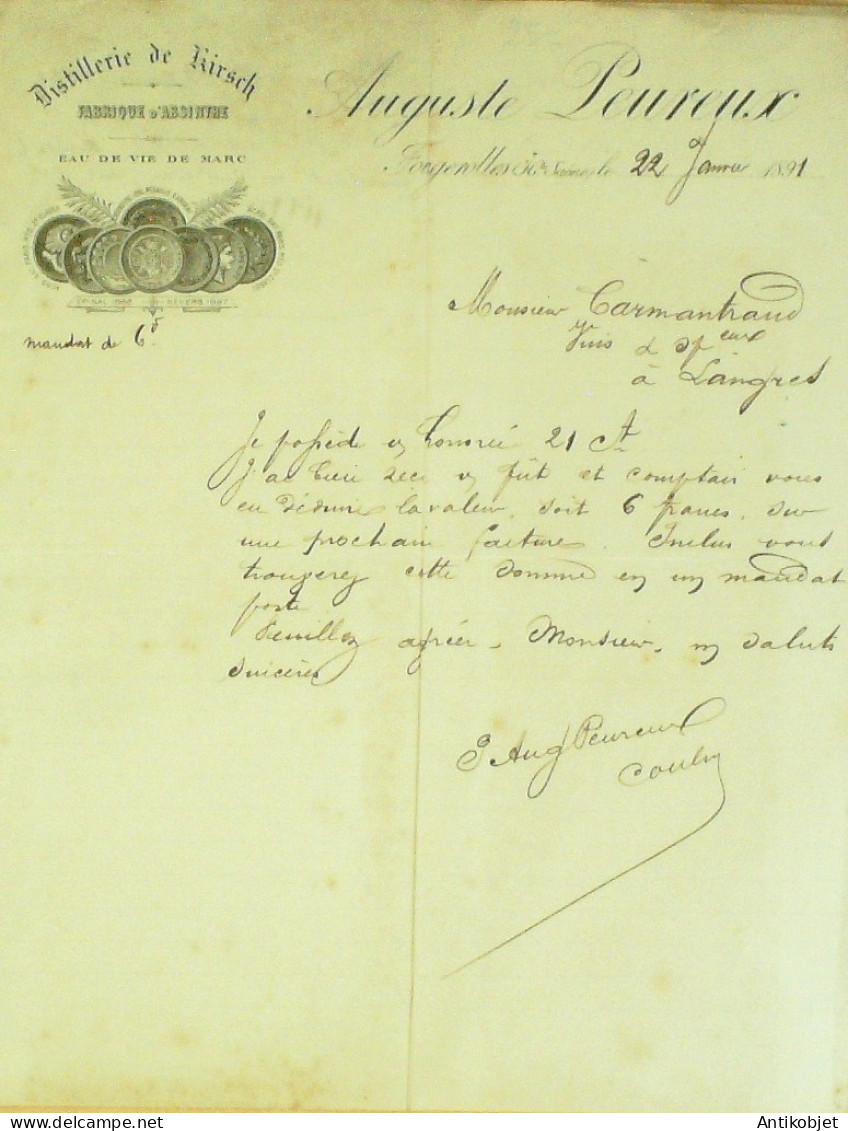 Distillerie de Kirsch
FABRIQUE D'ABSINTHE
EAU DE VIE DE MARC
Auguste Peureux
Fougerolles Hte Saône, le 22 Janvier 1891
mandat de 6f
Monsieur Carmantrand
Vins & Speux
à Langres
Je possède v/ honorée 21 Ct
J'ai bien reçu v/ fût et comptais vous
en déduire la valeur, soit 6 francs, sur
une prochaine facture. Inclus vous
trouverez cette somme en un mandat
poste
Veuillez agréer, Monsieur, m/ saluts
sincères
Aug Peureux
Antikobjet